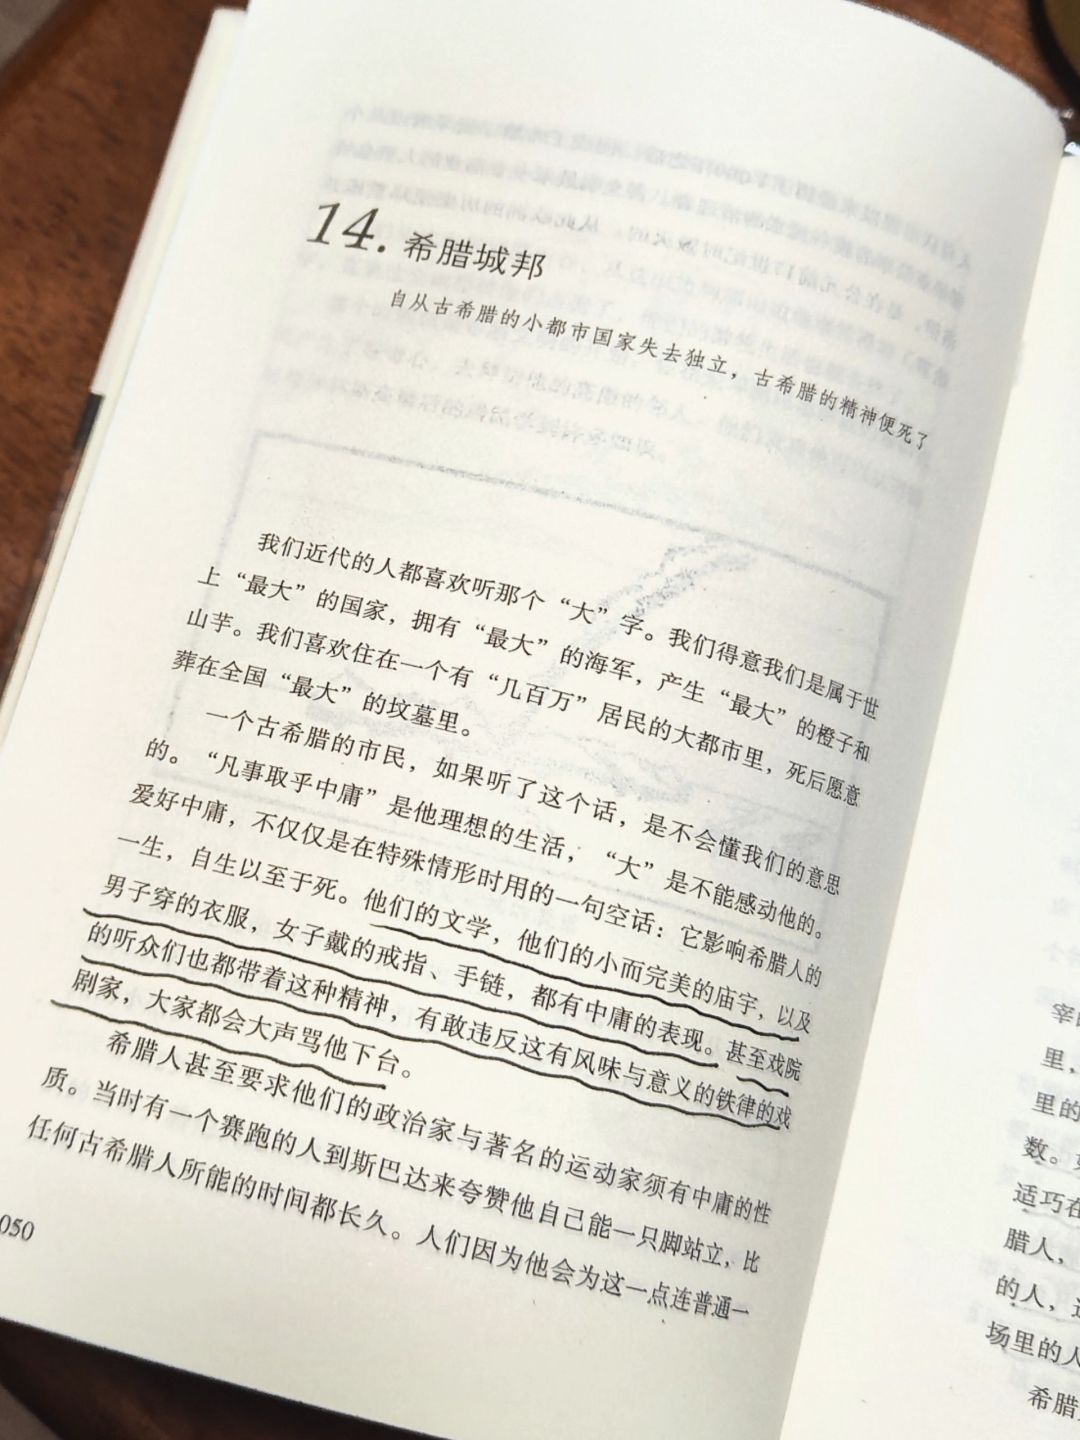 14. 希腊城邦
自从古希腊的小都市国家失去独立，古希腊的精神便死了
我们近代的人都喜欢听那个“大”字。我们得意我们是属于世
上“最大”的国家，拥有“最大”的海军，产生“最大”的橙子和
山芋。我们喜欢住在一个有“几百万”居民的大都市里，死后愿意
葬在全国“最大”的坟墓里。
一个古希腊的市民，如果听了这个话，是不会懂我们的意思
的。“凡事取乎中庸”是他理想的生活，“大”是不能感动他的。
爱好中庸，不仅仅是在特殊情形时用的一句空话：它影响希腊人的
一生，自生以至于死。他们的文学，他们的小而完美的庙宇，以及
男子穿的衣服，女子戴的戒指、手链，都有中庸的表现。甚至戏院
的听众们也都带着这种精神，有敢违反这有风味与意义的铁律的戏
剧家，大家都会大声骂他下台。
希腊人甚至要求他们的政治家与著名的运动家须有中庸的性
质。当时有一个赛跑的人到斯巴达来夸赞他自己能一只脚站立，比
任何古希腊人所能的时间都长久。人们因为他会为这一点连普通一
050
里，
里的
数。
适巧在
腊人，
的人，
场里的人
希腊